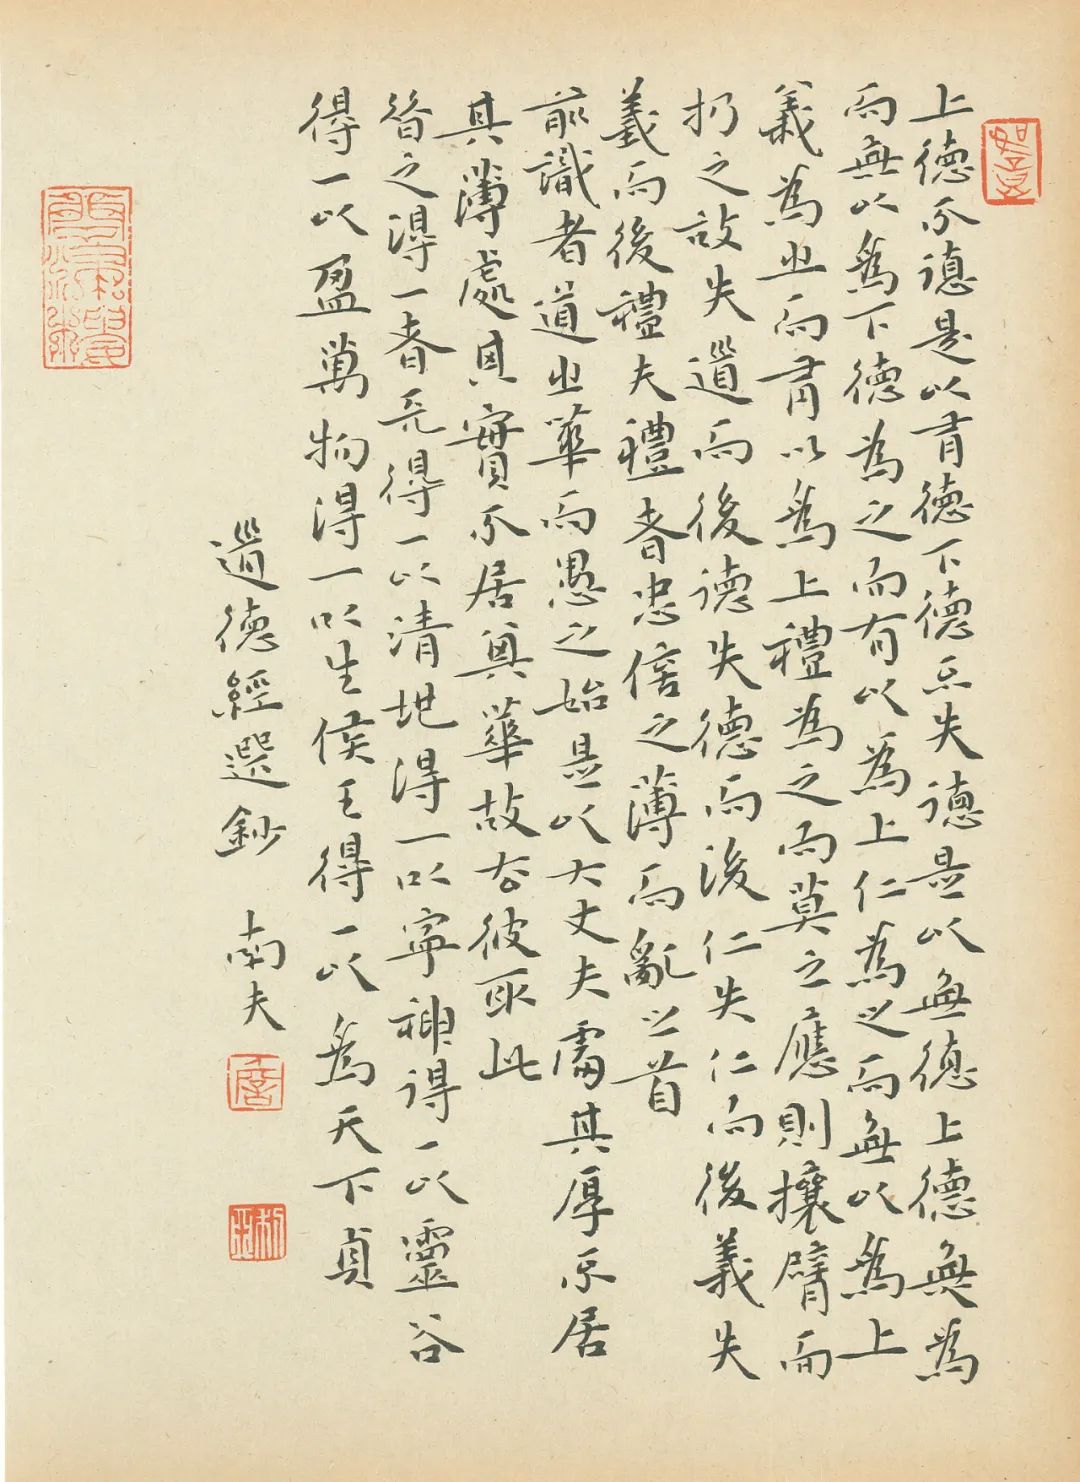 上德不德是以有德下德不失德是以無德上德無為
而無以為下德為之而有以為上仁為之而無以為上
義為之而有以為上禮為之而莫之應則攘臂而
扔之故失道而後德失德而後仁失仁而後義失
義而後禮夫禮者忠信之薄而亂之首
前識者道之華而愚之始是以大丈夫處其厚不居
其薄處其實不居其華故去彼取此
昔之得一者天得一以清地得一以寧神得一以靈谷
得一以盈萬物得一以生侯王得一以為天下貞
道德經選鈔 南夫